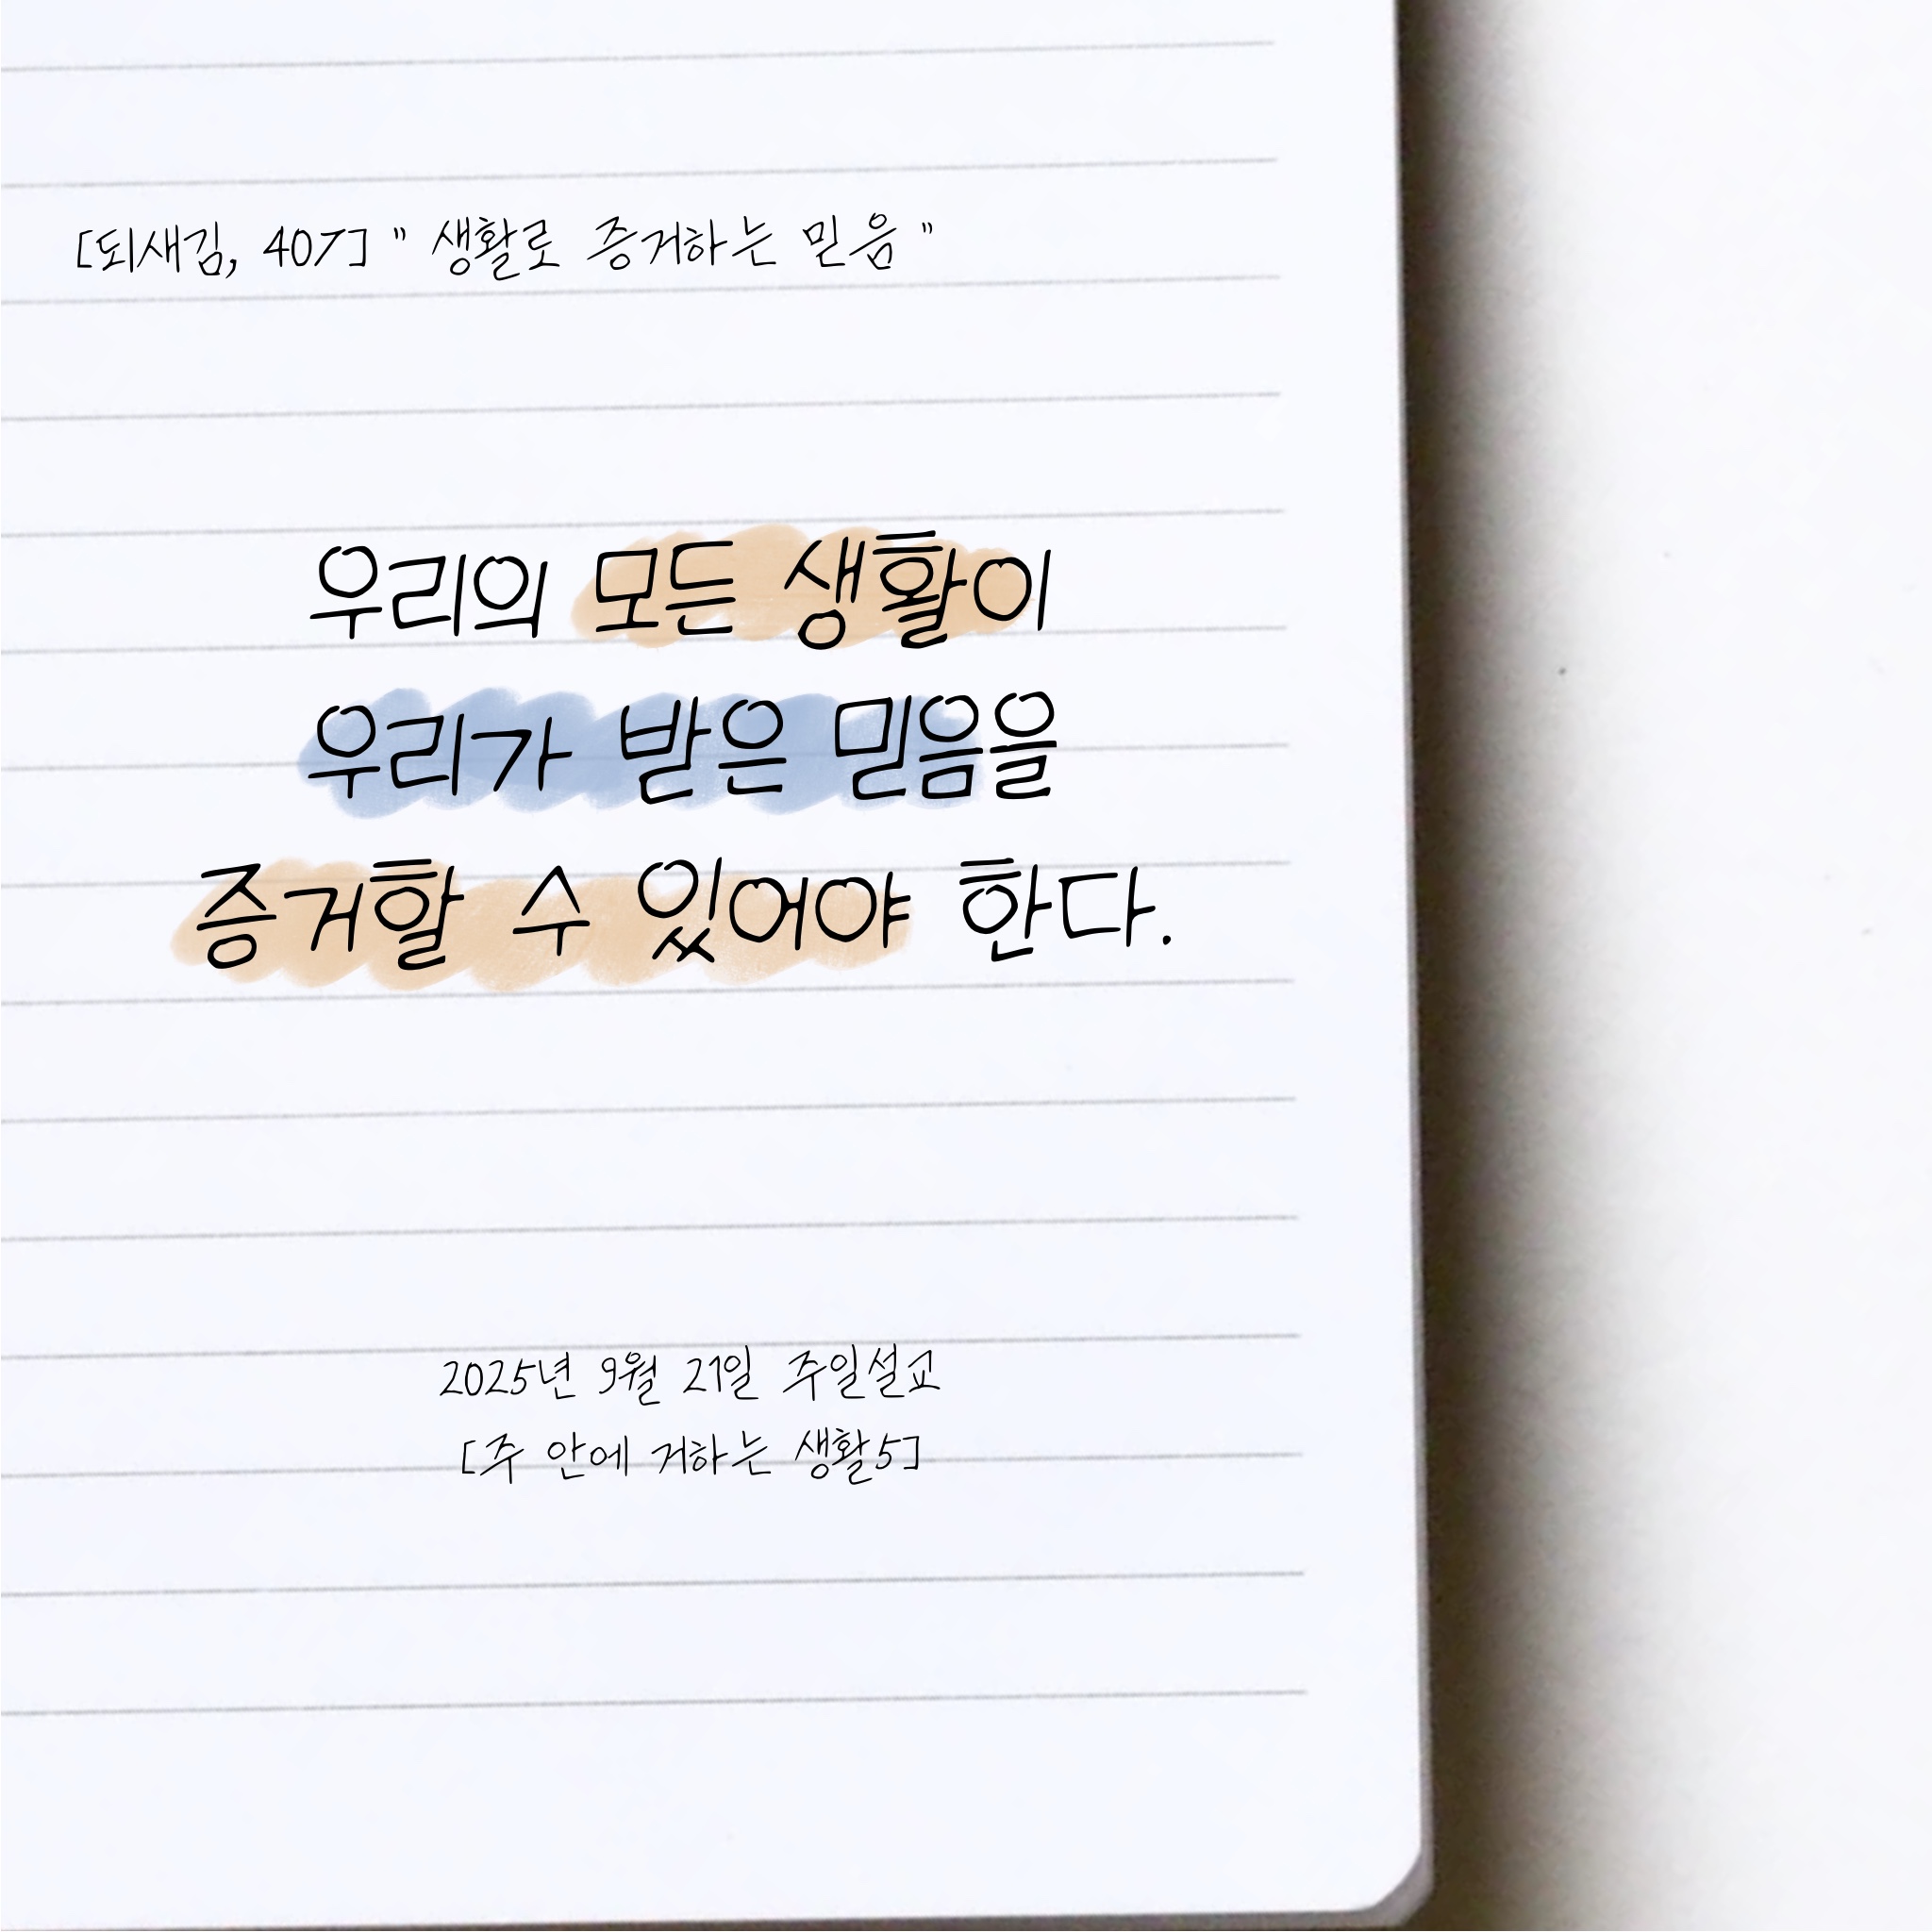 [되새김, 407] " 생활로 증거하는 믿음 "
우리의 모든 생활이
우리가 받은 믿음을
증거할 수 있어야 한다.
2025년 9월 21일 주일설교
[주 안에 거하는 생활5]